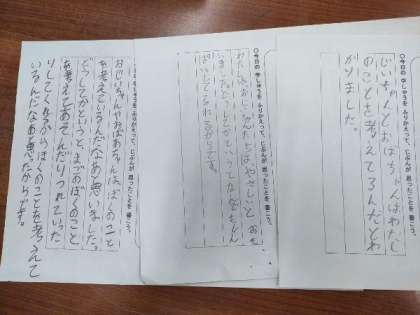 ○今日の学しゅうを ふりかえって、じぶんが 思ったことを 書こう。
じいちゃんとおばちゃんはわたし
のことを考えてるんだとわ
かりました。
○今日の学しゅうを ふりかえって、じぶんが 思ったことを 書こう。
わたしはおじいちゃんたちは、やさしいと おも
○今日の学しゅうを ふりかえって、じぶんが 思ったことを 書こう。
おじいちゃんやおばあちゃんは、ぼくのこと
を考えているんだなあと思いました。
どうしてかというと、まごのぼくのこと
を考えてあそんだりつれていった
りしてくれるからぼくのことを考えて
いるんだなあと思ったからです。